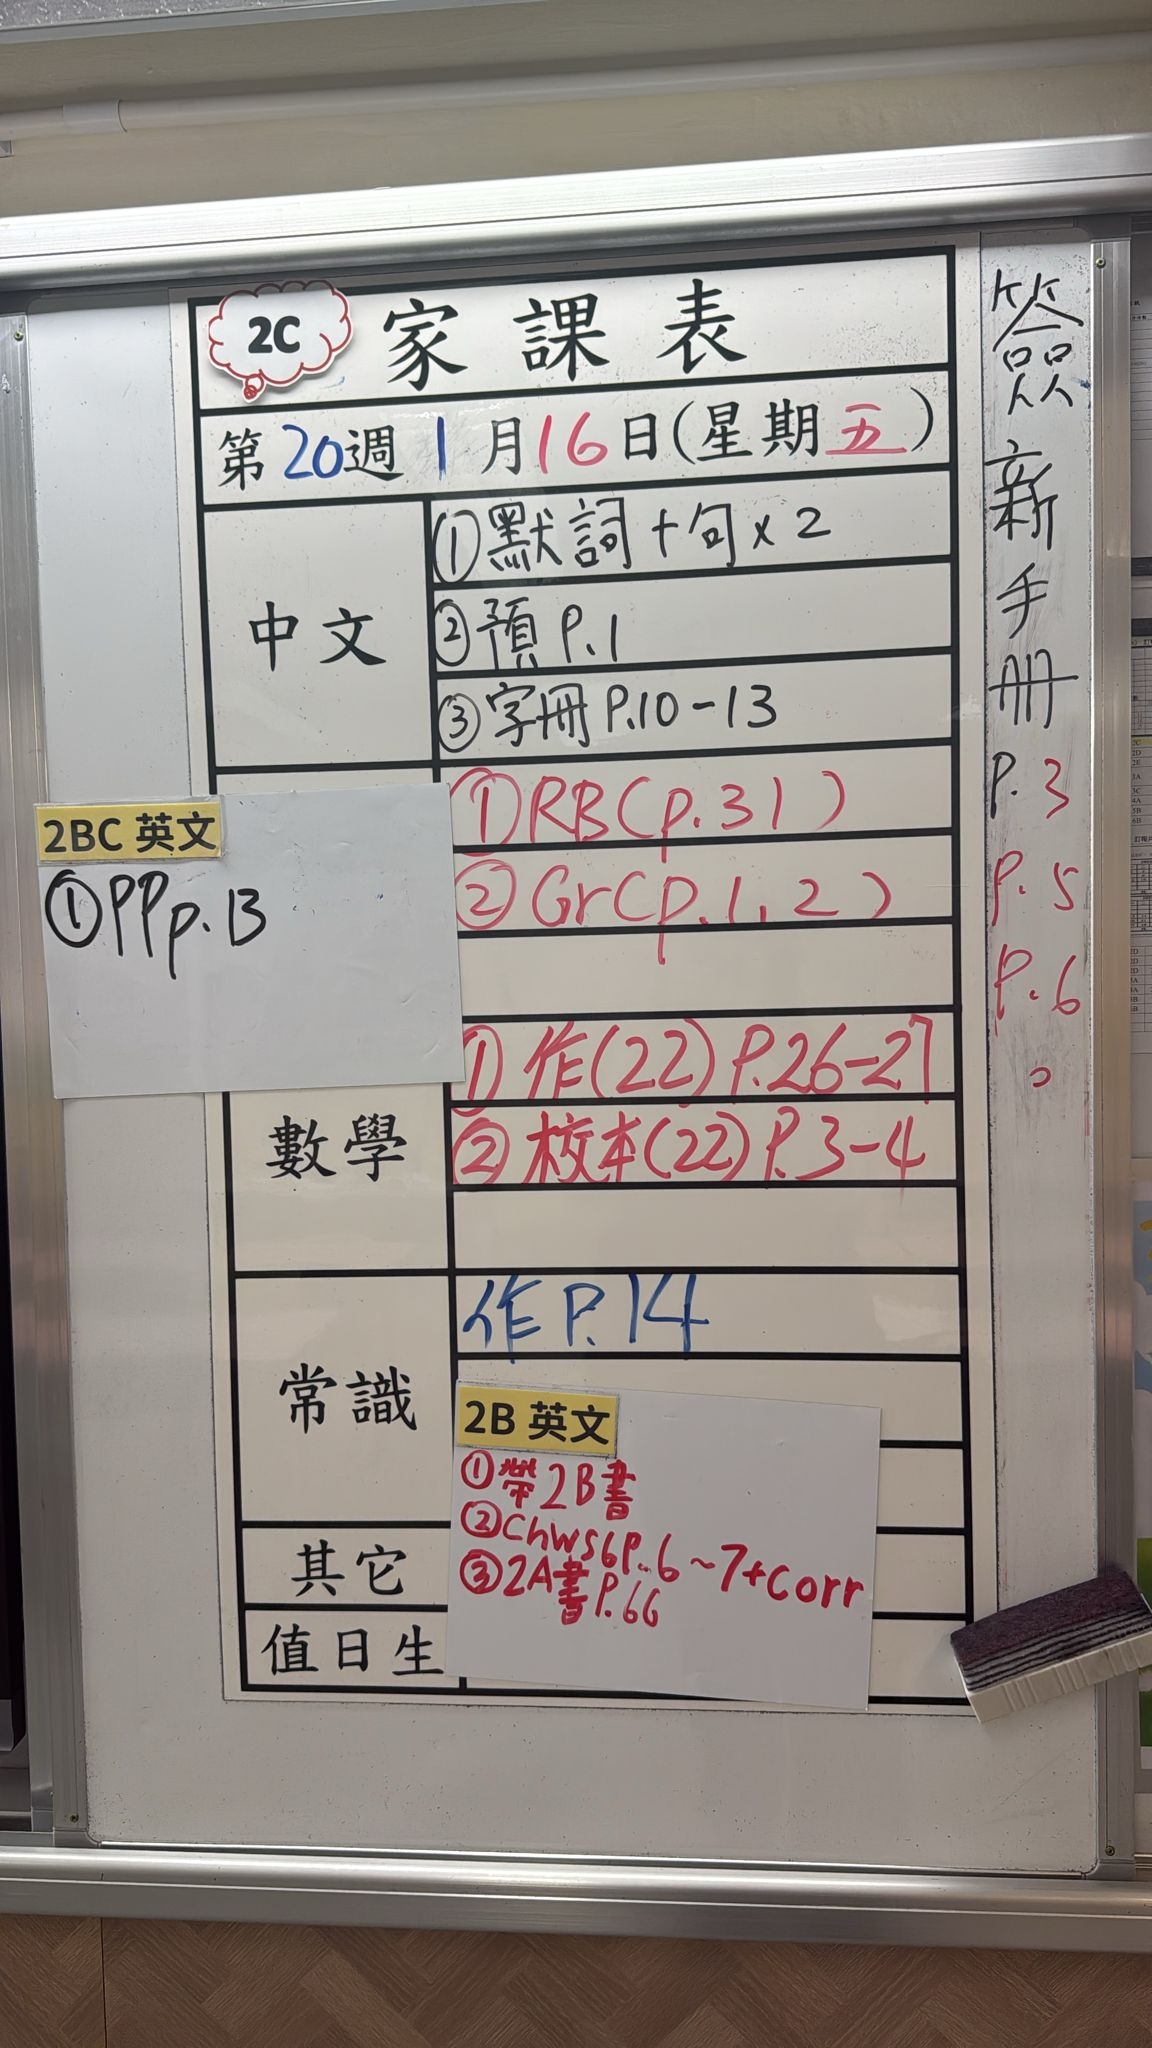 2C 家課表
第20週1月16日(星期五)
中文
①默詞+句x2
②預P.1
③字冊P.10-13
2BC 英文
①PPp.13
①RB(p.31)
②Gr(p.1,2)
數學
①作(22)P.26-27
②校本(22)P.3-4
常識
作P.14
2B 英文
①帶2B書
②ChWS6P.6~7+corr
③2A書P.66
其它
值日生
簽新手冊
P.3
P.5
P.6
。